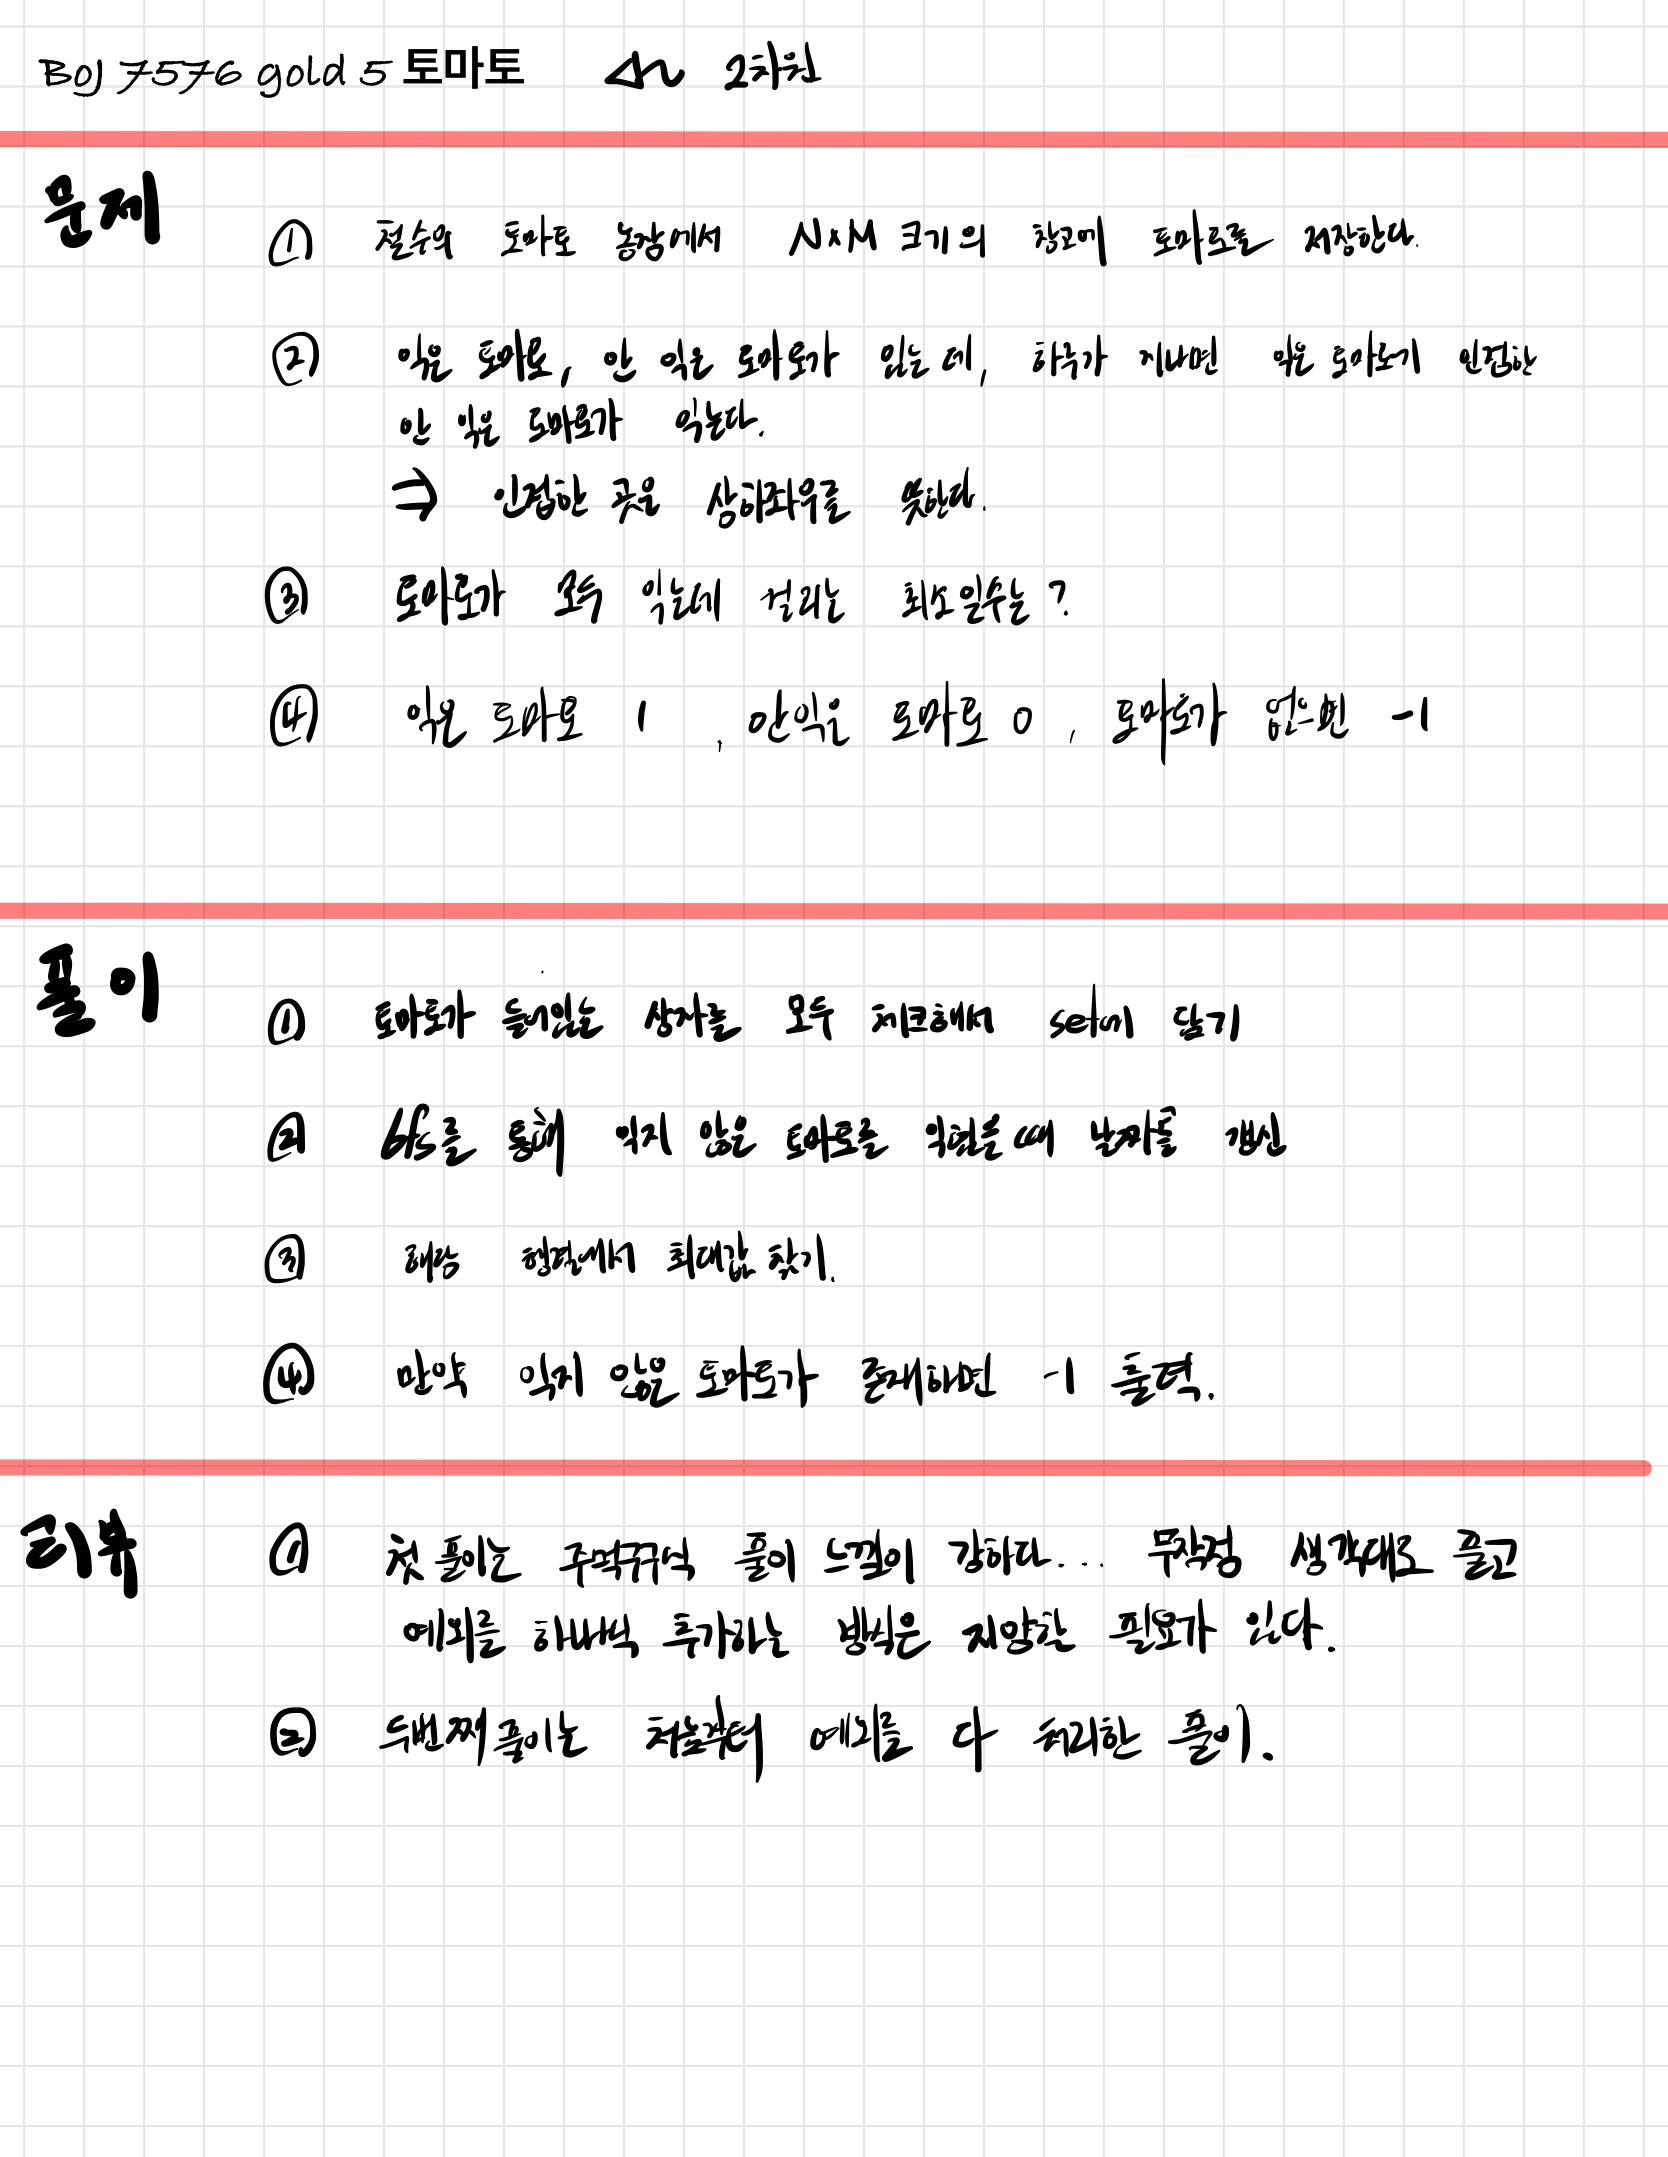 BOJ 7576 gold 5 토마토 2차원
문제
① 철수의 토마토 농장에서 N×M 크기의 창고에 토마토를 저장한다.
② 익은 토마토, 안 익은 토마토가 있는데, 하루가 지나면 익은 토마토기 인접한
안 익은 토마토가 익는다.
⇒ 인접한 곳은 상하좌우를 뜻한다.
③ 토마토가 모두 익는데 걸리는 최소일수는?
④ 익은 토마토 1, 안익은 토마토 0, 토마토가 없으면 -1
풀이
① 토마토가 들어있는 상자를 모두 체크해서 set에 담기
② bfs를 통해 익지 않은 토마토를 익혔을 때 날짜를 갱신
③ 해당 행렬에서 최대값 찾기.
④ 만약 익지 않은 토마토가 존재하면 -1 출력.
리뷰
① 첫 풀이는 주먹구구식 풀이 느낌이 강하다... 무작정 생각대로 풀고
예외를 하나씩 추가하는 방식은 지양할 필요가 있다.
② 두번째 풀이는 처음부터 예외를 다 처리한 풀이.